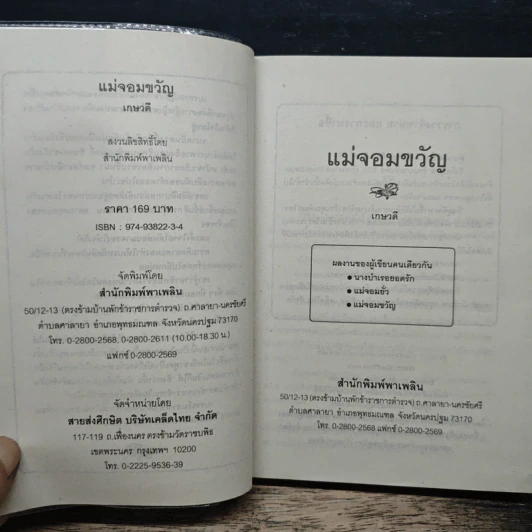 แม่จอมขวัญ
เกษวดี
สงวนลิขสิทธิ์โดย
สำนักพิมพ์พาเพลิน
ราคา 169 บาท
ISBN : 974-93822-3-4
จัดพิมพ์โดย
สำนักพิมพ์พาเพลิน
50/12-13 (ตรงข้ามบ้านพักข้าราชการตำรวจ) ถ.ศาลายา-นครชัยศรี
ตำบลศาลายา อำเภอพุทธมณฑล จังหวัดนครปฐม 73170
โทร. 0-2800-2568, 0-2800-2611 (10.00-18.30 น.)
แฟกซ์ 0-2800-2569
จัดจำหน่ายโดย
สายส่งศึกษิต บริษัทเคล็ดไทย จำกัด
117-119 ถ.เฟื่องนคร ตรงข้ามวัดราชบพิธ
เขตพระนคร กรุงเทพฯ 10200
โทร. 0-2225-9536-39
แม่จอมขวัญ
เกษวดี
ผลงานของผู้เขียนคนเดียวกัน
• นางบำเรอยอดรัก
• แม่จอมยั่ว
• แม่จอมขวัญ
สำนักพิมพ์พาเพลิน
50/12-13 (ตรงข้ามบ้านพักข้าราชการตำรวจ) ถ.ศาลายา-นครชัยศรี
ตำบลศาลายา อำเภอพุทธมณฑล จังหวัดนครปฐม 73170
โทร. 0-2800-2568 แฟกซ์ 0-2800-2569